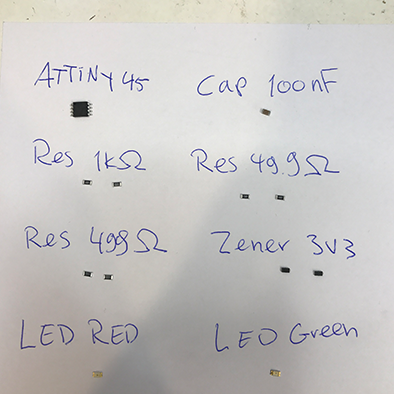 ATTiNY45
Cap 100nF
Res 1kΩ
Res 49.9Ω
Res 499Ω
Zener 3V3
LED RED
LED Green